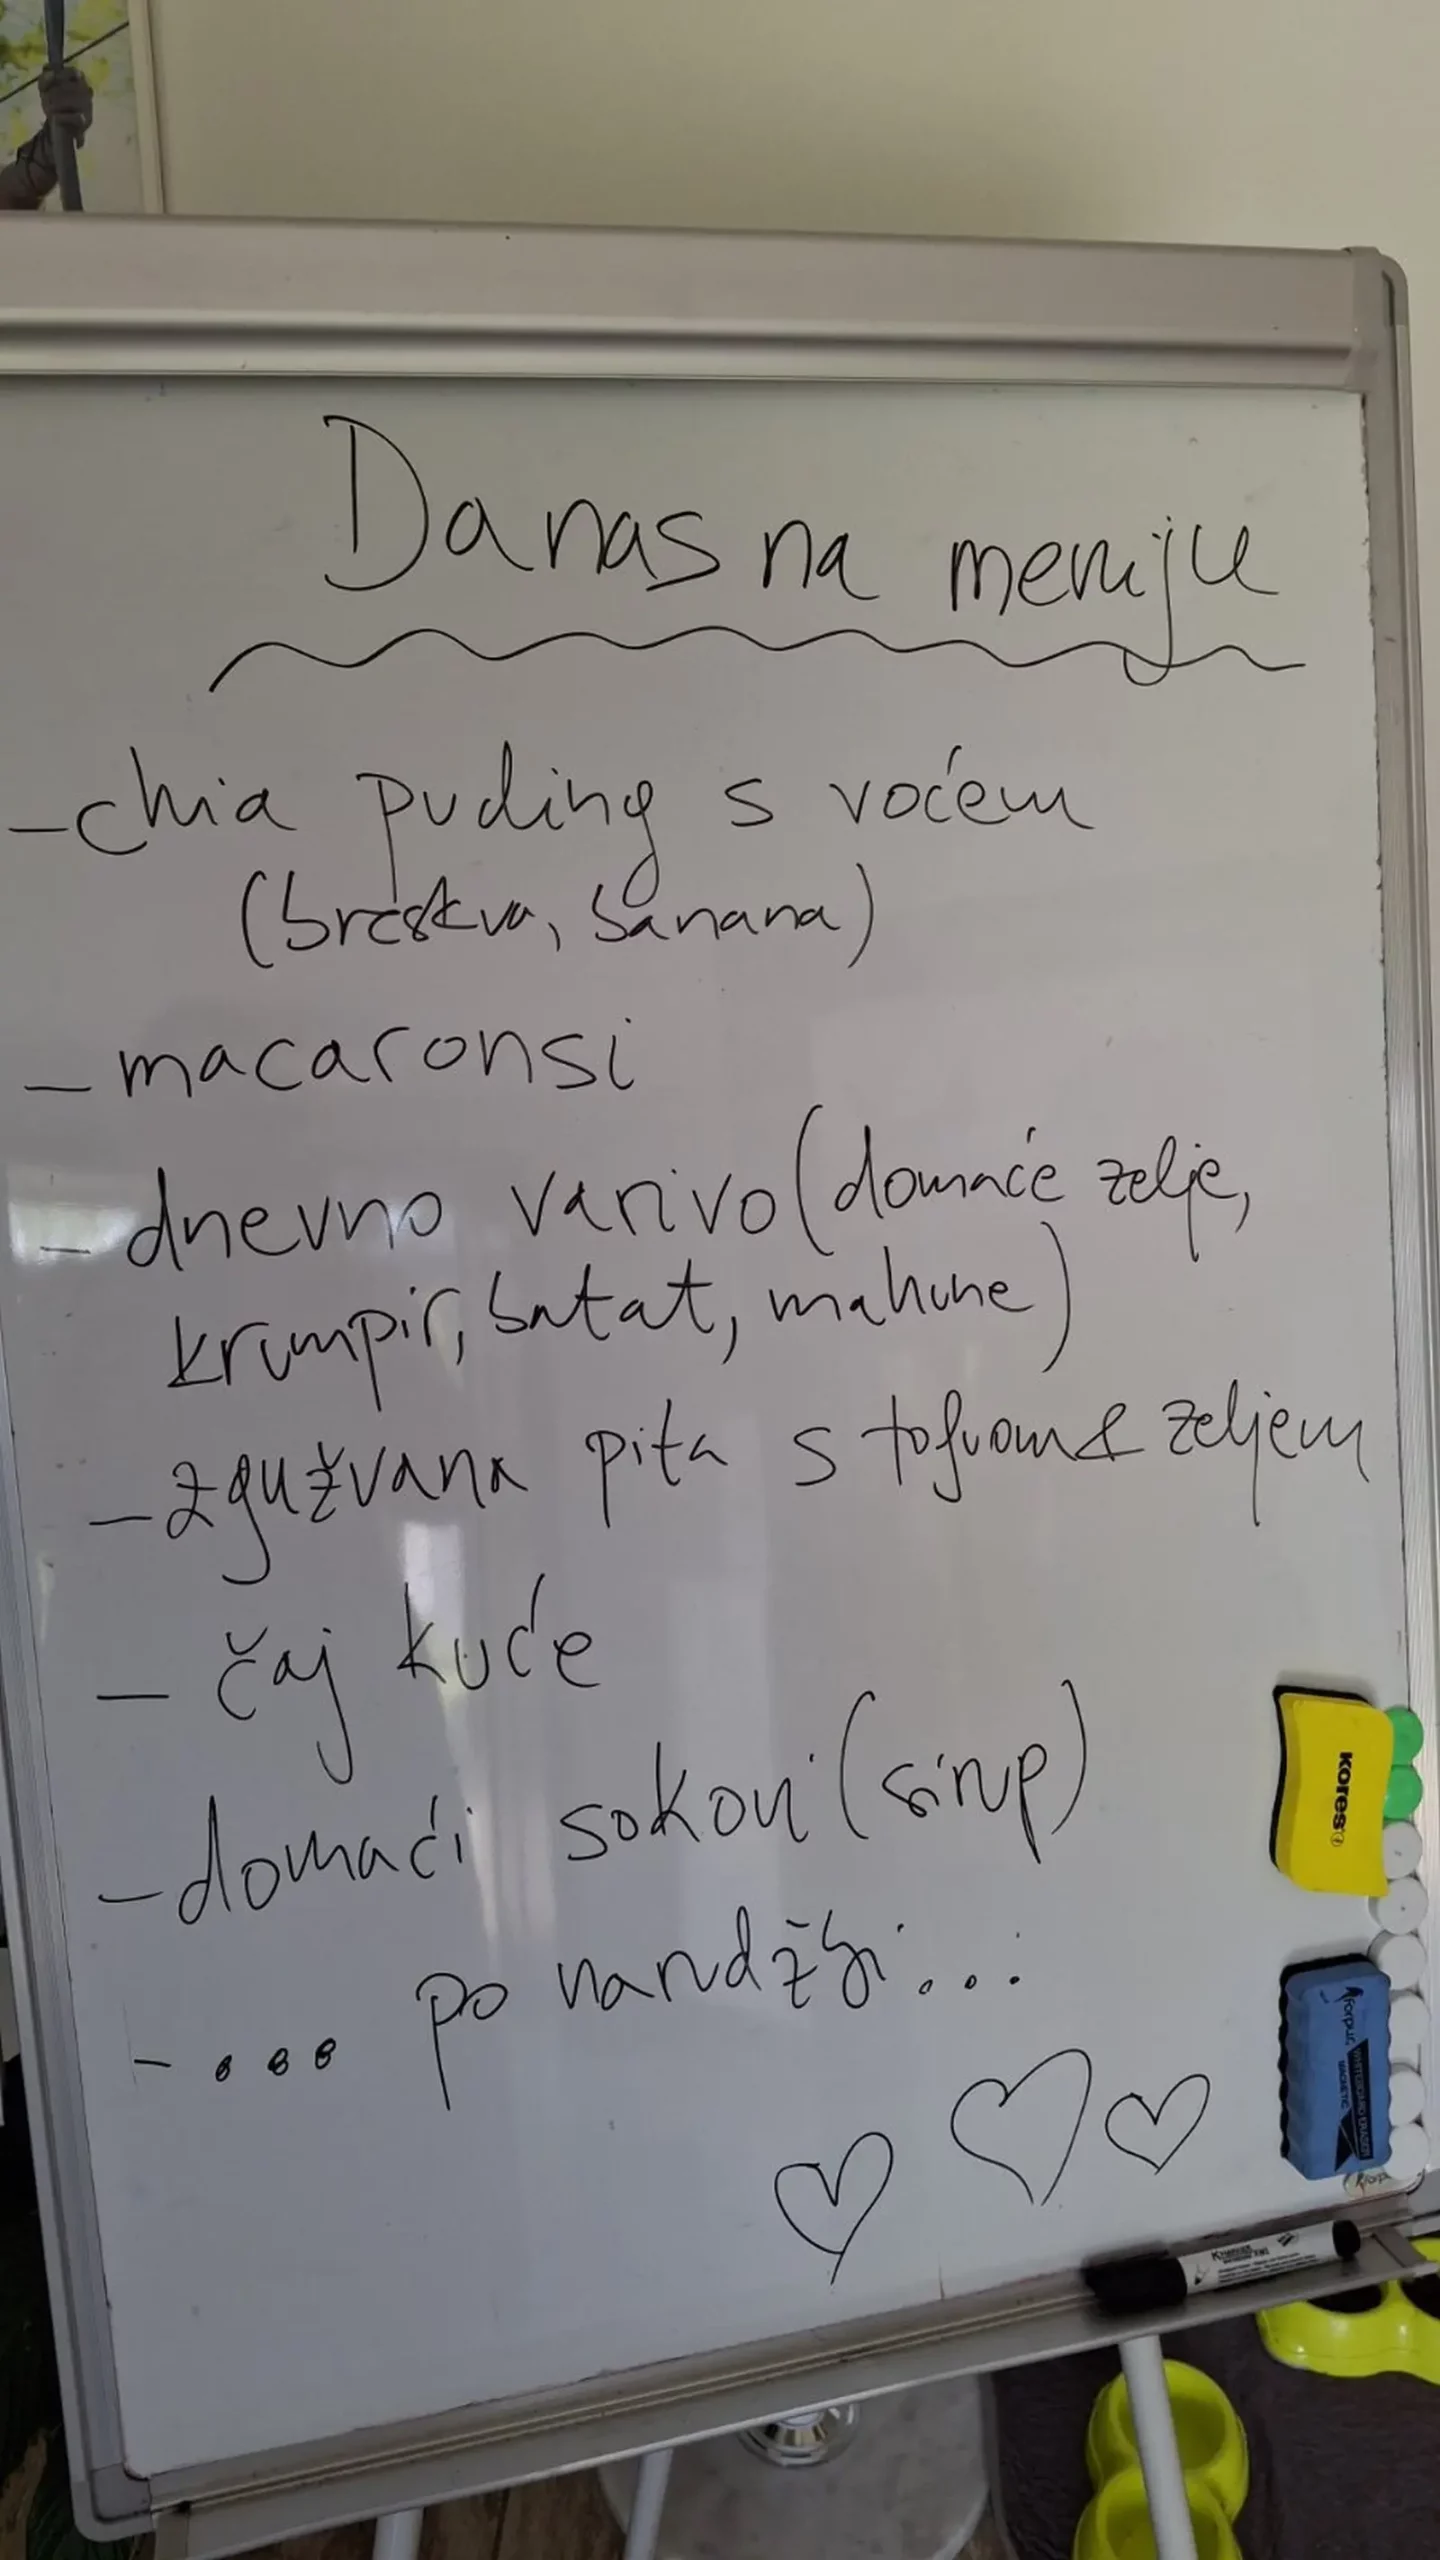 Danas na meniju
- chia puding s voćem
(breskva, banana)
- macaronsi
- dnevno varivo (domaće zelje,
krumpir, batat, mahune)
- zgužvana pita s tofuom & zeljem
- čaj kuće
- domaći sokovi (sirup)
- ... po narudžbi...
KORES
forpus
WHITEBOARD ERASER
MAGNETIC